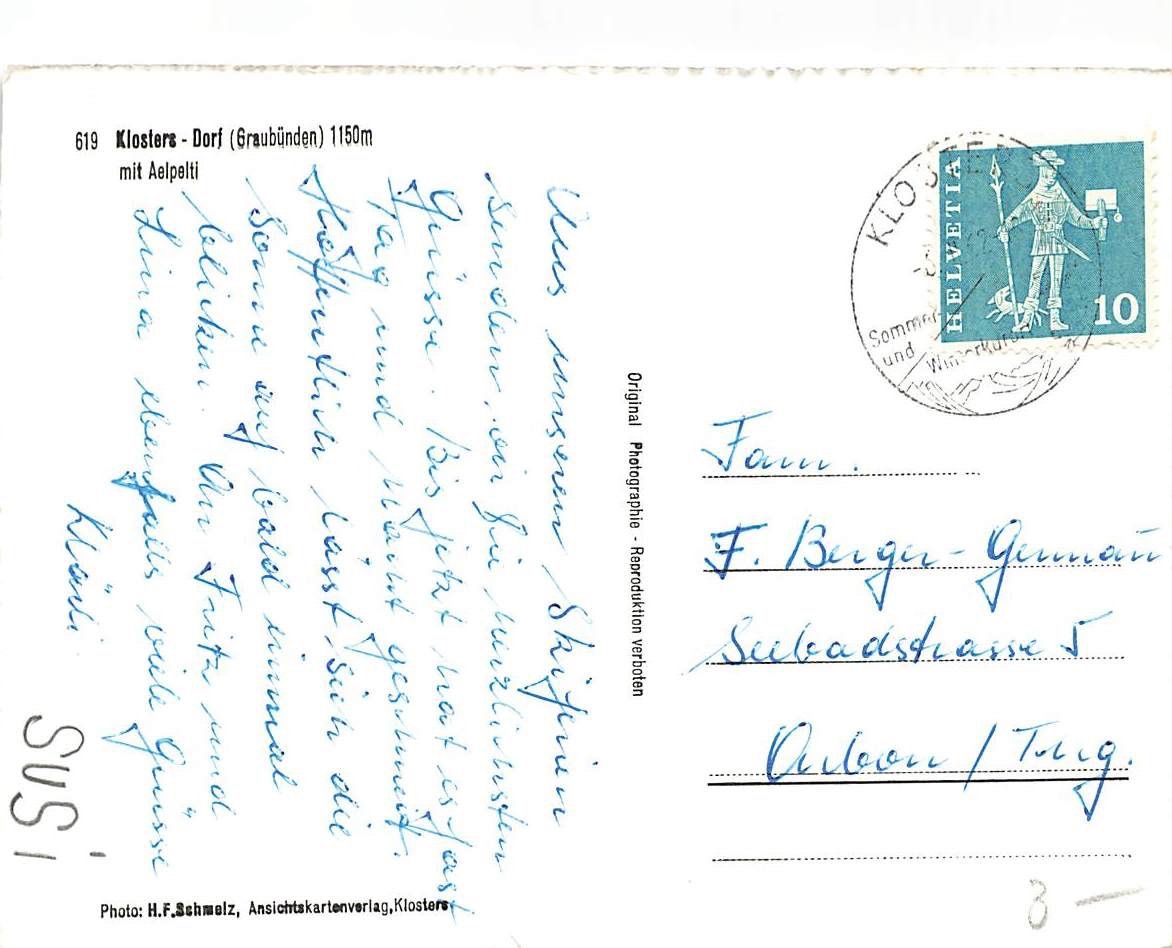 619 Klosters - Dorf (Graubünden) 1150m
mit Aelpelti
Aus unseren Skiferien
senden wir Euch die herzlichsten
Grüsse. Bis jetzt hat es fast
Tag und Nacht geschneit.
Hoffentlich lässt sich die
Sonne auf bald einmal
blicken. An Fritz und
Lina ebenfalls viele Grüsse
Kläri
SUSI
Photo: H.F.Schmelz, Ansichtskartenverlag,Klosters
Original Photographie - Reproduktion verboten
KLOSTERS
Sommer
und Winterkurort
HELVETIA
10
Fam.
F. Berger - Germann
Seebadstrasse 5
Arbon / Thg.
8 —